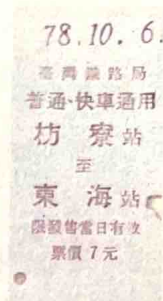 78.10.6.
臺灣鐵路局
普通·快車通用
枋寮站
至
東海站
限發售當日有效
票價7元